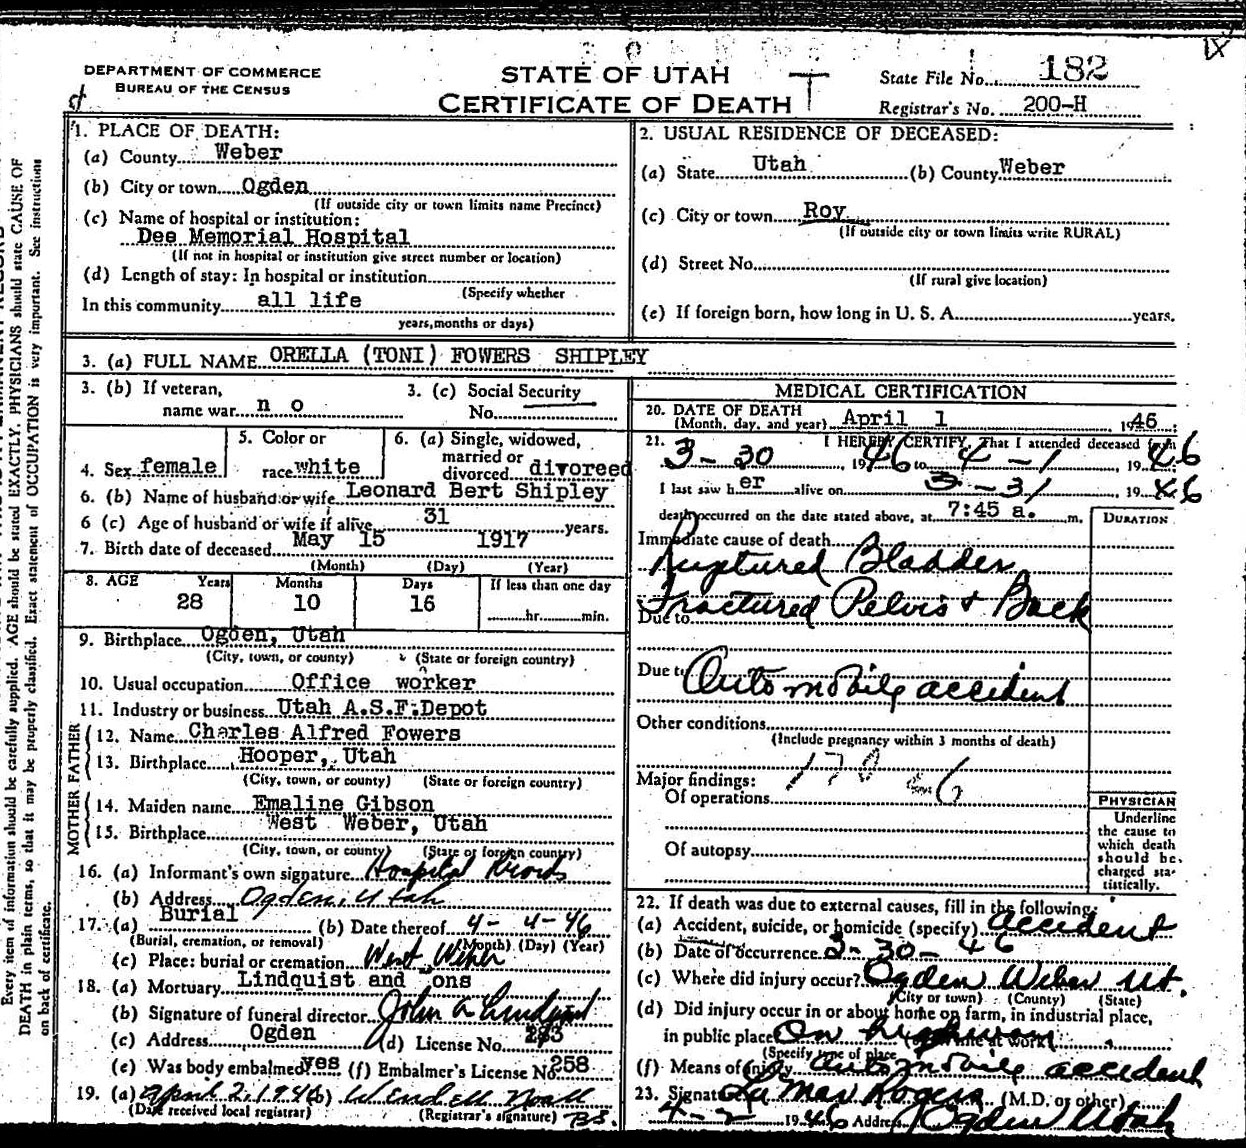 DEPARTMENT OF COMMERCE
BUREAU OF THE CENSUS
STATE OF UTAH
CERTIFICATE OF DEATH
State File No. 182
Registrar's No. 200-H
1. PLACE OF DEATH:
(a) County Weber
(b) City or town Ogden
(If outside city or town limits name Precinct)
(c) Name of hospital or institution:
Dee Memorial Hospital
(If not in hospital or institution give street number or location)
(d) Length of stay: In hospital or institution
(Specify whether
In this community all life
years, months or days)
2. USUAL RESIDENCE OF DECEASED:
(a) State Utah (b) County Weber
(c) City or town Roy
(If outside city or town limits write RURAL)
(d) Street No.
(If rural give location)
(e) If foreign born, how long in U. S. A. years.
3. (a) FULL NAME ORELLA (TONI) FOWERS SHIPLEY
3. (b) If veteran,
name war no
3. (c) Social Security
No.
4. Sex female
5. Color or
race white
6. (a) Single, widowed,
married or
divorced divorced
6. (b) Name of husband or wife Leonard Bert Shipley
6 (c) Age of husband or wife if alive 31 years.
7. Birth date of deceased May 15 1917
(Month) (Day) (Year)
8. AGE Years Months Days If less than one day
28 10 16 hr. min.
9. Birthplace Ogden, Utah
(City, town, or county) (State or foreign country)
10. Usual occupation Office worker
11. Industry or business Utah A.S.F. Depot
FATHER
12. Name Charles Alfred Fowers
13. Birthplace Hooper, Utah
(City, town, or county) (State or foreign country)
MOTHER
14. Maiden name Emaline Gibson
15. Birthplace West Weber, Utah
(City, town, or county) (State or foreign country)
16. (a) Informant's own signature Hospital Records
(b) Address Ogden, Utah
17. (a) Burial (b) Date thereof 4-4-46
(Burial, cremation, or removal) (Month) (Day) (Year)
(c) Place: burial or cremation West Weber
18. (a) Mortuary Lindquist and ons
(b) Signature of funeral director John A Lindquist
(c) Address Ogden (d) License No.
(e) Was body embalmed yes (f) Embalmer's License No. 258
19. (a) April 2, 1946 (b) Wendell Noall
(Date received local registrar) (Registrar's signature) BS.
MEDICAL CERTIFICATION
20. DATE OF DEATH
(Month, day, and year) April 1 1946
21. I HEREBY CERTIFY, That I attended deceased from
3-30, 1946 to 4-1, 1946
I last saw her alive on 3-31 1946
death occurred on the date stated above, at 7:45 a. m.
DURATION
Immediate cause of death
Ruptured Bladder
Fractured Pelvis & Back
Due to
Due to Automobile accident
Other conditions
(Include pregnancy within 3 months of death)
Major findings:
Of operations
Of autopsy
PHYSICIAN
Underline
the cause to
which death
should be
charged sta-
tistically.
22. If death was due to external causes, fill in the following:
(a) Accident, suicide, or homicide (specify) accident
(b) Date of occurrence 3-30-46
(c) Where did injury occur? Ogden Weber Ut.
(City or town) (County) (State)
(d) Did injury occur in or about home on farm, in industrial place,
in public place On highway
(Specify type of place)
(f) Means of injury automobile accident
23. Signature LaMar Rogers (M.D. or other)
4-2 1946 Address Ogden Utah
Every item of information should be carefully supplied. AGE should be stated EXACTLY. PHYSICIANS should state CAUSE OF
DEATH in plain terms, so that it may be properly classified. Exact statement of OCCUPATION is very important. See instructions
on back of certificate.